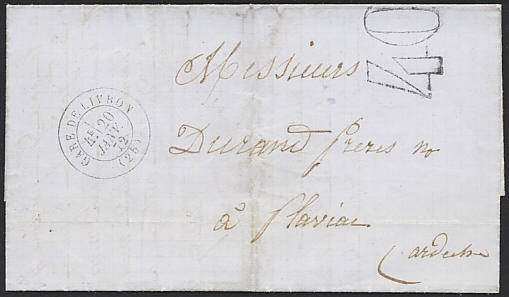 40
Messieurs
GARE DE LIVRON
20
JANV.
72
(25)
Durand frères
à Flaviac
(ardèche